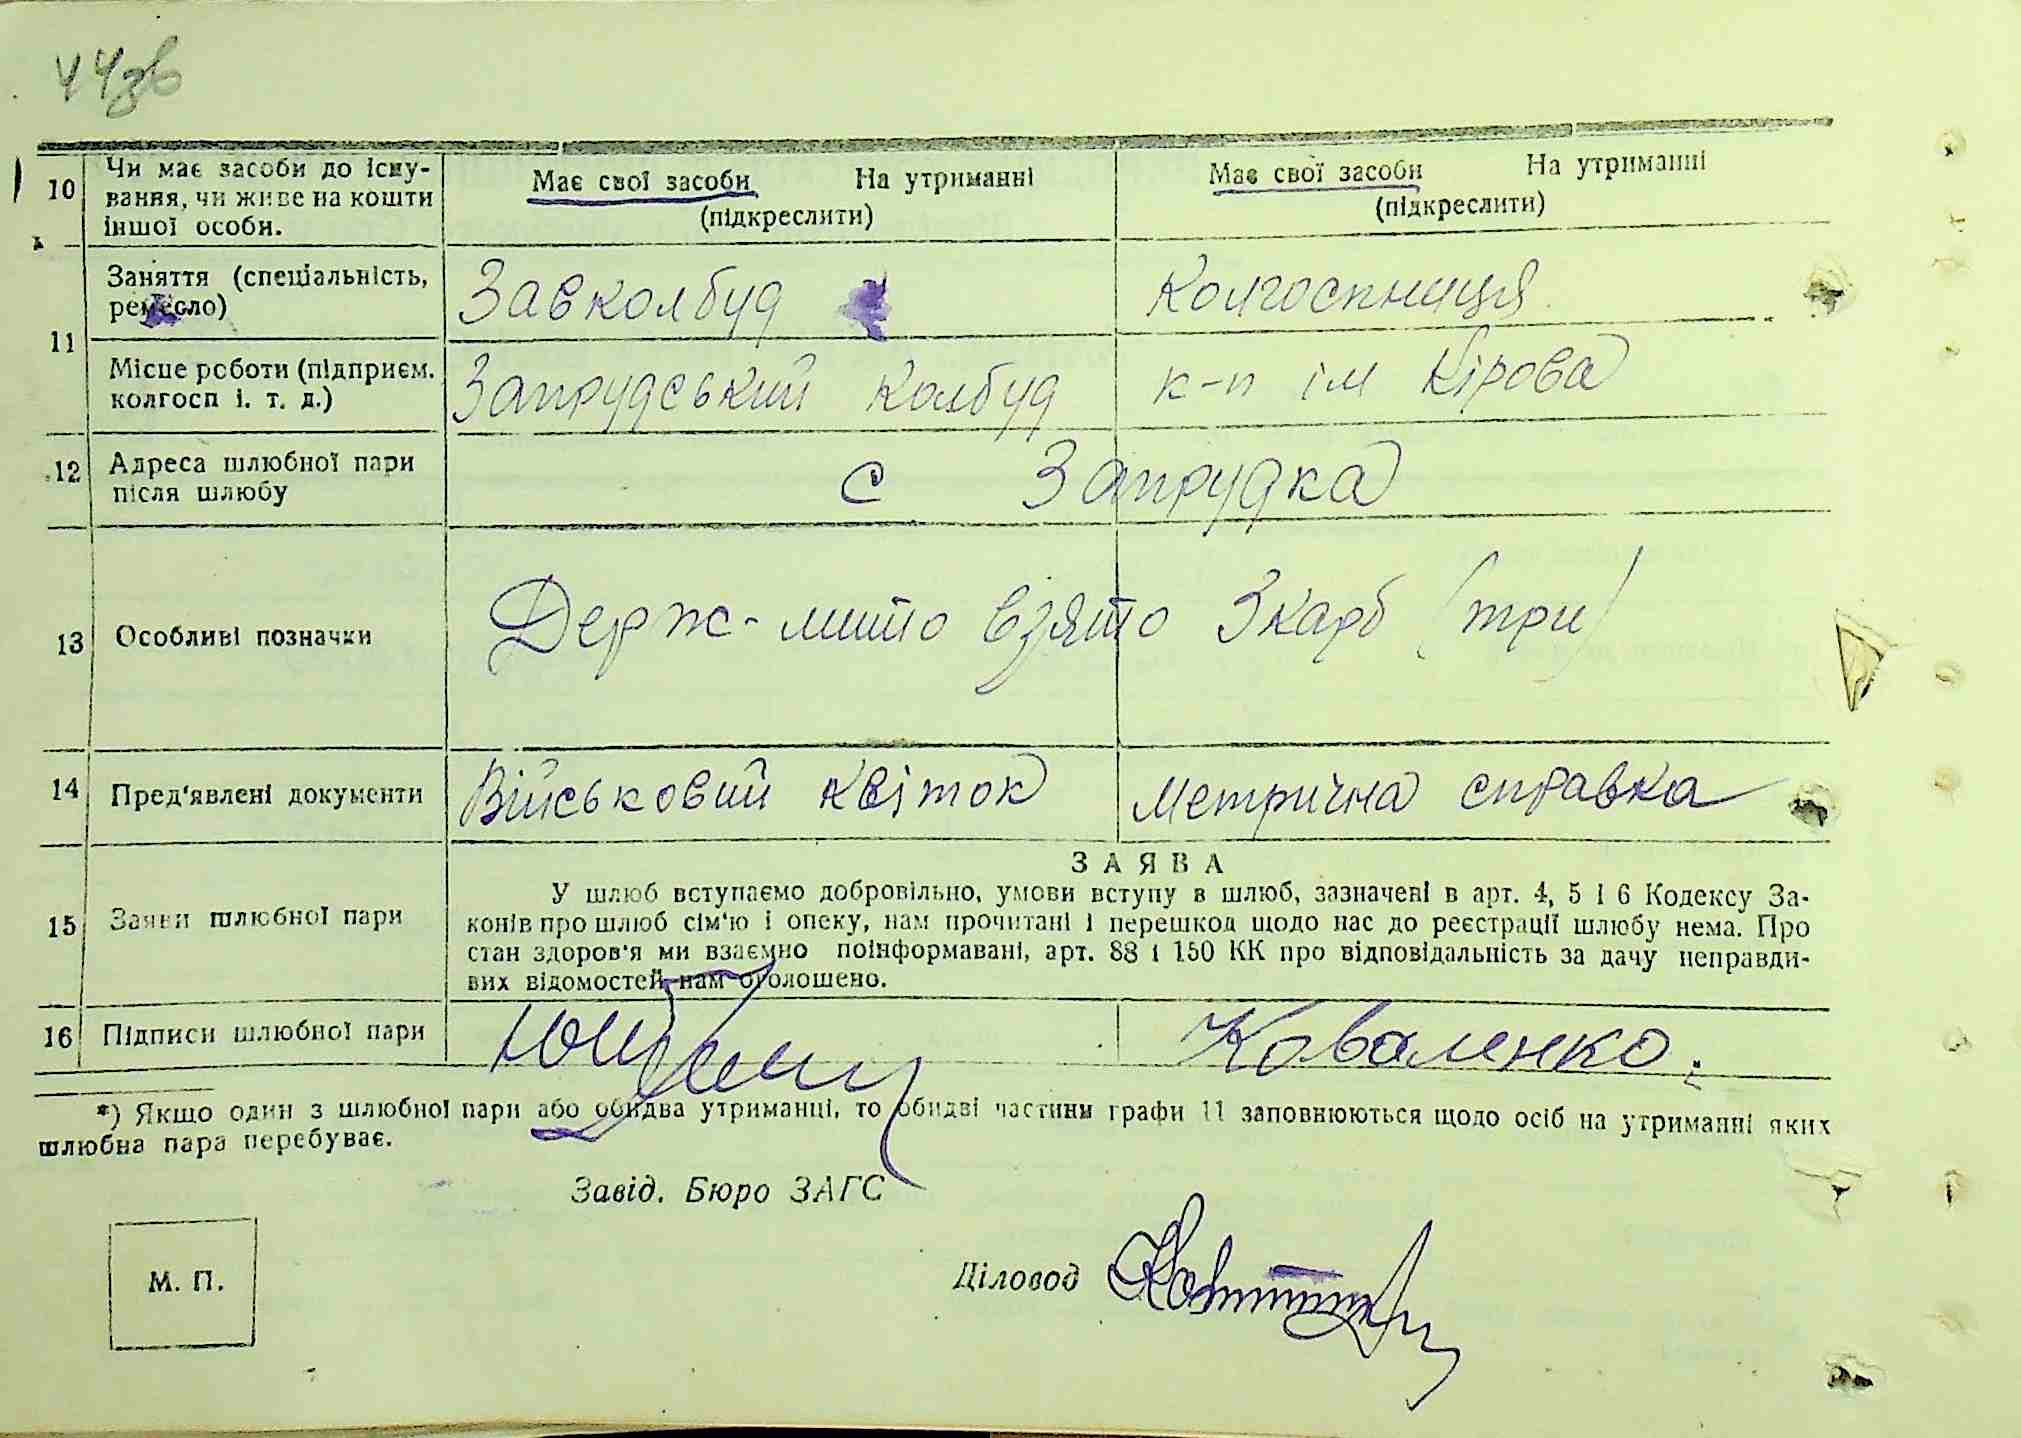 44зв
10 Чи має засоби до існу-
вання, чи живе на кошти
іншої особи.
Має свої засоби На утриманні
(підкреслити)
Має свої засоби На утриманні
(підкреслити)
11 Заняття (спеціальність,
ремесло)
Завколбуд
Колгоспниця
Місце роботи (підприєм.
колгосп і. т. д.)
Запрудський колбуд
к-п ім Кірова
12 Адреса шлюбної пари
після шлюбу
с Запрудка
13 Особливі позначки
Держ-мито взято 3 карб (три)
14 Пред'явлені документи
Військовий квіток
Метрична справка
15 Заяви шлюбної пари
ЗАЯВА
У шлюб вступаємо добровільно, умови вступу в шлюб, зазначені в арт. 4, 5 і 6 Кодексу За-
конів про шлюб сім'ю і опеку, нам прочитані і перешкод щодо нас до реєстрації шлюбу нема. Про
стан здоров'я ми взаємно поінформавані, арт. 88 і 150 КК про відповідальність за дачу неправди-
вих відомостей нам оголошено.
16 Підписи шлюбної пари
Коваленко.
*) Якщо один з шлюбної пари або обидва утриманці, то обидві частини графи 11 заповнюються щодо осіб на утриманні яких
шлюбна пара перебуває.
Завід. Бюро ЗАГС
Діловод
М. П.